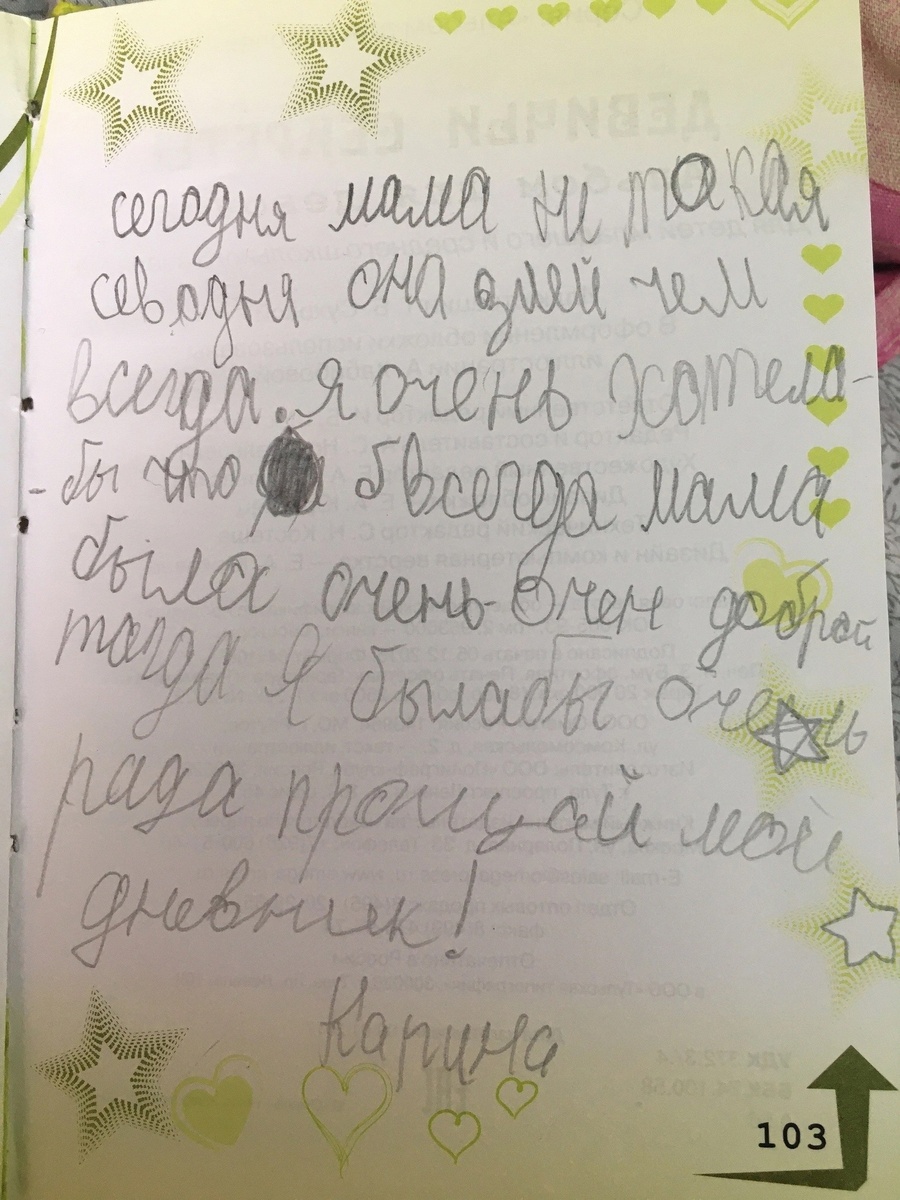 сегодня мама не такая
севодня она злей чем
всегда. я очень хотела-
-бы что бвсегда мама
была очень-очен доброй
тогда я былабы очень
рада прощай мой
дневник!
Карина
103